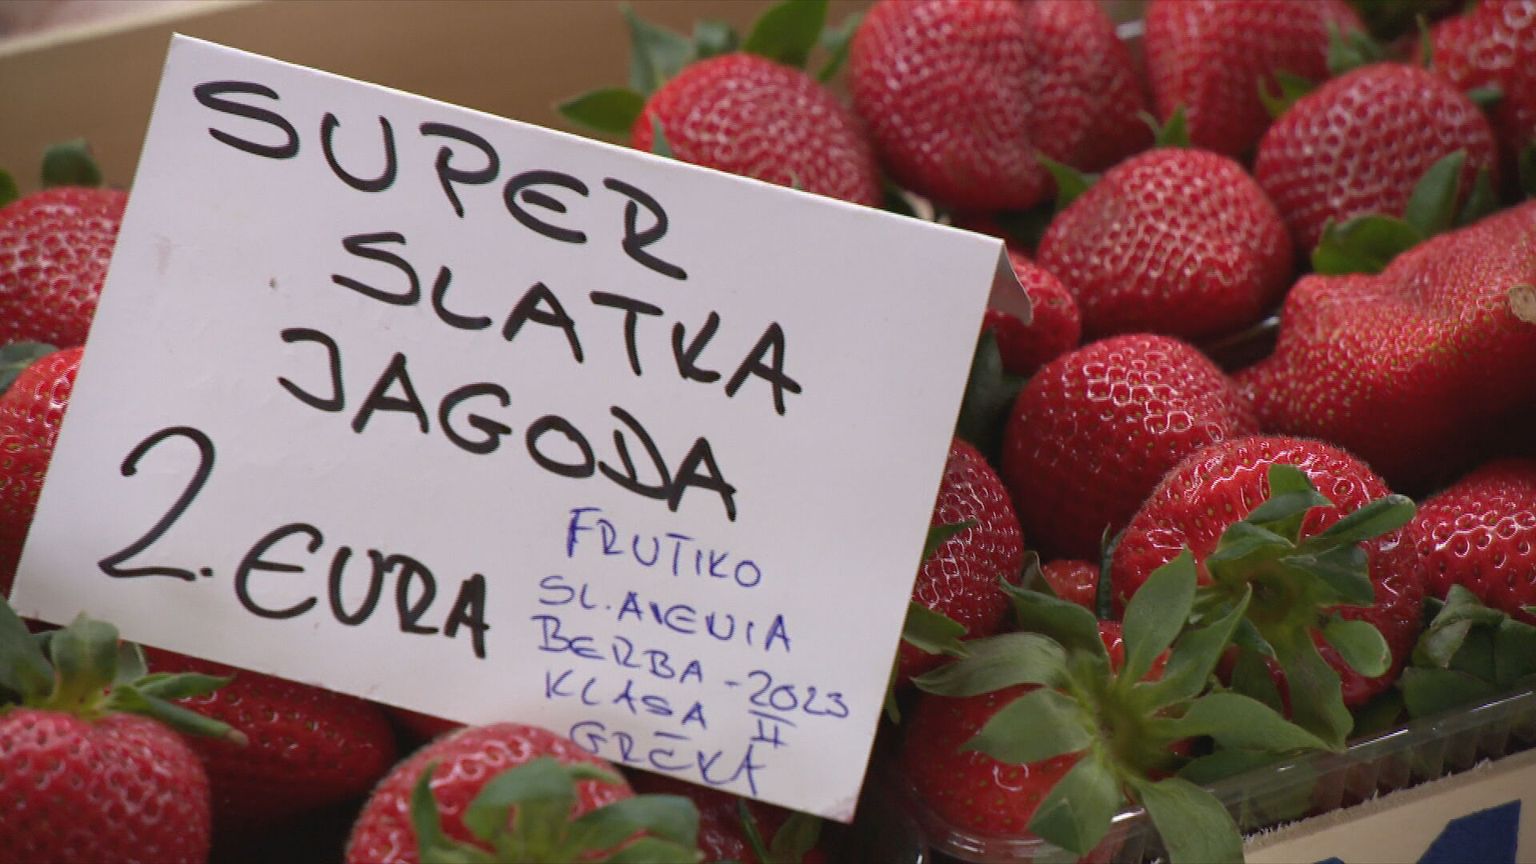 SUPER
SLATKA
JAGODA
2. EURA
FRUTIKO
BERBA - 2023
KLASA II
GRČKA